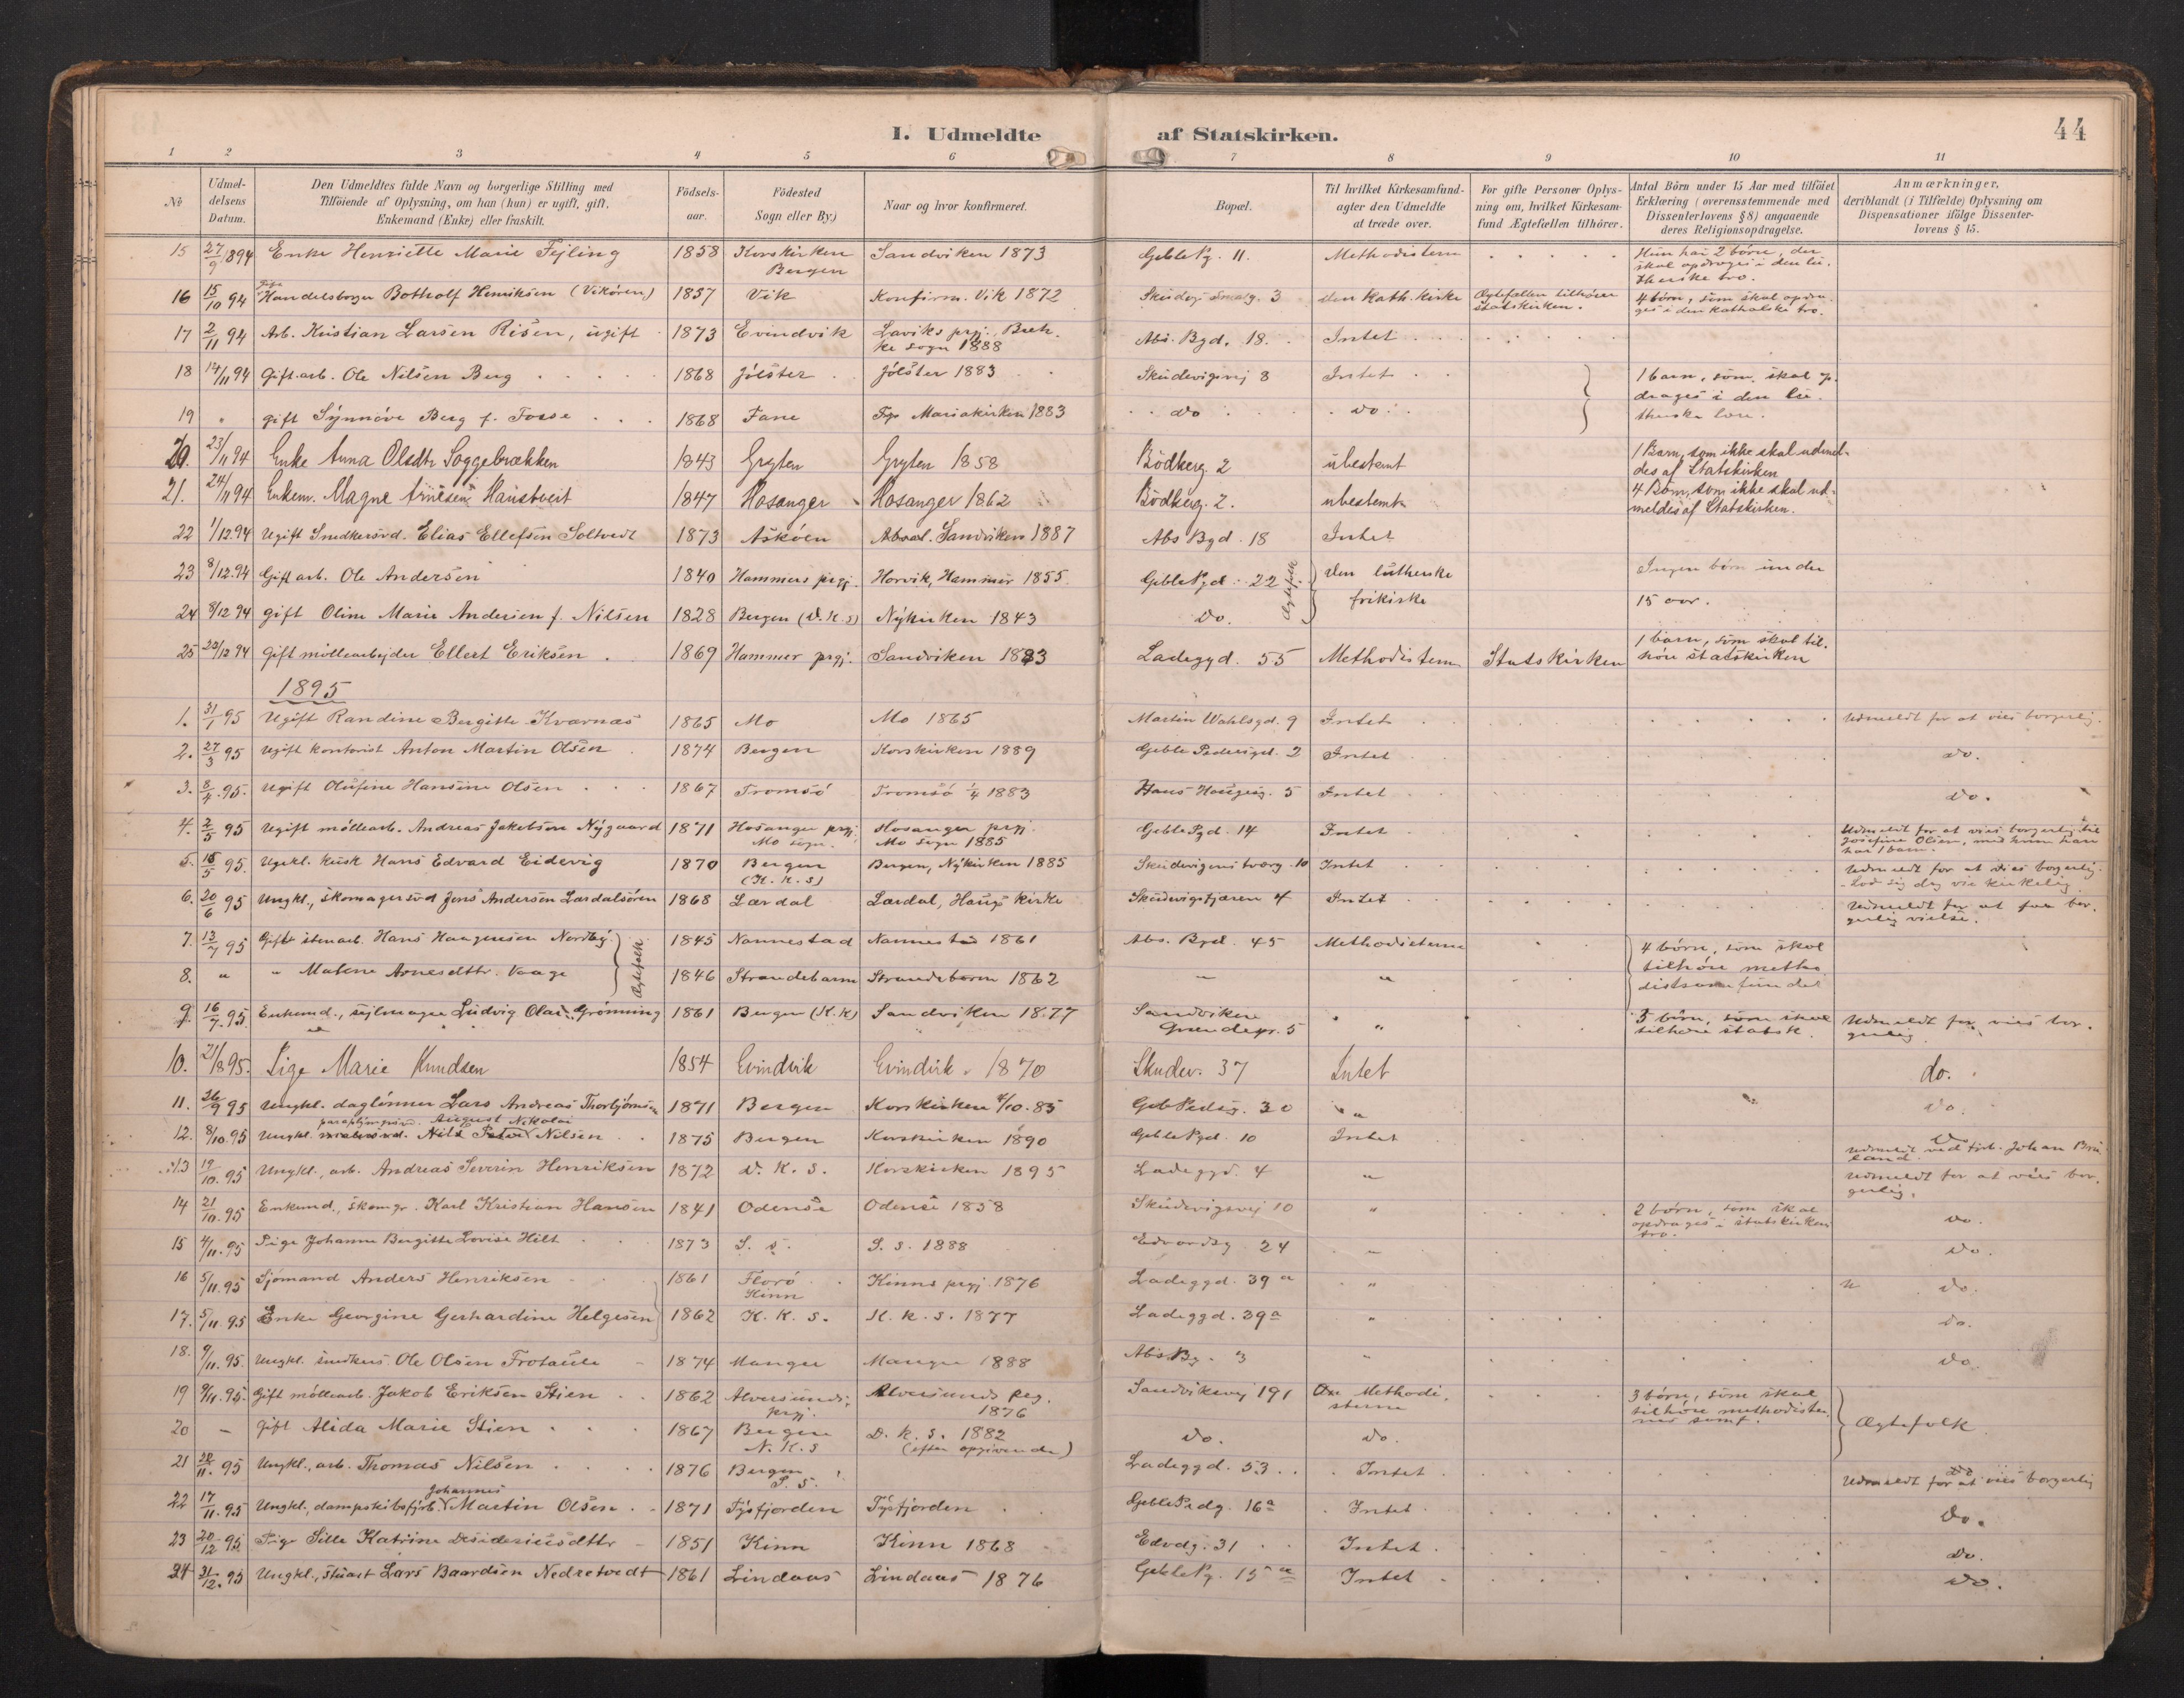 I. Udmeldte af Statskirken.
44
1 2 3 4 5 6 7 8 9 10 11
No
Udmel-
delsens
Datum.
Den Udmeldtes fulde Navn og borgerlige Stilling med
Tilföiende af Oplysning, om han (hun) er ugift, gift,
Enkemand (Enke) eller fraskilt.
Födsels-
aar.
Födested
Sogn eller By.)
Naar og hvor konfirmeret.
Bopæl.
Til hvilket Kirkesamfund-
agter den Udmeldte
at træde over.
For gifte Personer Oplys-
ning om, hvilket Kirkesam-
fund Ægtefællen tilhörer.
Antal Börn under 15 Aar med tilföiet
Erklæring (overensstemmende med
Dissenterlovens § 8) angaaende
deres Religionsopdragelse.
Anmærkninger,
deriblandt (i Tilfælde) Oplysning om
Dispensationer ifölge Dissenter-
lovens § 15.
15 27/9 1894 Enke Henriette Marie Fejling 1858 Korskirken Bergen Sandviken 1873 GeblePg. 11. Methodisterne Hun har 2 börn, der skal opdrages i den lu-therske tro.
16 15/10 94 Handelsborger Botholf Henriksen (Vikören) 1857 Vik Konfirm. Vik 1872 Skudevigsmg. 3 den kath. kirke Ægtefællen tilhörer statskirken. 4 börn, som skal opdra-ges i den katholske tro.
17 2/11 94 Arb. Kristian Larsen Risen, ugift 1873 Evindvik Laviks prgj., Brek-ke sogn 1888 Abs. Bgd. 18. Intet
18 14/11 94 Gift arb. Ole Nilsen Berg 1868 Jölster Jölster 1883 Skudevigsvej 8 Intet 1 barn, som skal op-drages i den lu-therske lære.
19 " gift Synnöve Berg f. Tosse 1868 Fane Mariakirken 1883 do do
20. 23/11 94 Enke Anna Olsdtr Soggebrækken 1843 Gryten Gryten 1858 Bödkerg. 2 ubestemt 1 Barn, som ikke skal udmel-des af Statskirken
21. 24/11 94 Enkem. Magne Arnesen Haustveit 1847 Hosanger Hosanger 1862 Bödkerg. 2. ubestemt 4 Börn, som ikke skal ud-meldes af Statskirken.
22 1/12.94 Ugift Snedkersvd. Elias Ellefsen Soltvedt 1873 Asköen Sandviken 1887 Abs Bgd. 18 Intet
23 8/12.94 Gift arb. Ole Andersen 1840 Hammers prgj. Horvik, Hammer 1855 GeblePgd. 22 Ægtefolk den lutherske frikirke Ingen börn under 15 aar.
24 8/12 94 gift Oline Marie Andersen f. Nilsen 1828 Bergen (D.K.S) Nykirken 1843 Do.
25 22/12 94 Gift möllearbejder Ellert Eriksen 1869 Hammer prgj. Sandviken 1883 Ladegd. 55 Methodistern Statskirken 1 barn, som skal til-höre statskirken
1895
1. 31/1 95 Ugift Randine Bergitte Kvarnæs 1865 Mo Mo 1865 Martin Wahlsgd. 9 Intet Udmeldt for at vies borgerlig.
2. 27/3 95 Ugift kontorist Anton Martin Olsen 1874 Bergen Korskirken 1889 Geble Pedersgd. 2 Intet do.
3. 8/4.95. Ugift Olufine Hansine Olsen 1867 Tromsö Tromsö 1/4 1883 Hans Haugesg. 5 Intet do.
4. 2/5 95 Ugift möllearb. Andreas Jakobsen Nygaard 1871 Hosanger prgj. Mo sogn. Hosanger prgj. Mo sogn 1885 GeblePgd. 14 Intet Udmeldt for at vies borgerlig til Josefine Olsen, med hvem han har 1 barn.
5. 15/5 95. Ungkl. kusk Hans Edvard Eidevig 1870 Bergen (K.K.S) Bergen, Nykirken 1885 Skudevigens tværg. 10 Intet Udmeldt for at vies borgerlig. Lod sig dog vie kirkelig
6. 20/6 95 Ungkl., skomagersvd Jens Andersen Lærdalsören 1868 Lærdal Lærdal, Haugs kirke Skudevigsfjæren 4 Intet Udmeldt for at faa bor-gerlig vielse.
7. 13/7 95 Gift stenarb. Hans Haagensen Nordby 1845 Nannestad Nannestad 1861 Abs. Bgd. 45 Methodisterne 4 börn, som skal tilhöre metho-distsamfundet
8. " " Malene Arnesdttr. Vaage Ægtefolk 1846 Strandebarm Strandebarm 1862 " "
9. 16/7.95. Enkemd., sejlmager Ludvig Olai Grönning 1861 Bergen (K.K) Sandviken 1877 Sandviken 5 " 3 börn, som skal tilhöre statsk. Udmeldt for vies bor-gerlig
10. 21/8 95. Pige Marie Knudsen 1854 Evindvik Evindvik 1870 Skudev. 37 Intet do.
11. 26/9 95 Ungkl. daglönner Lars Andreas Thorbjörnsen 1871 Bergen Korskirken 4/10.85 GebPedsg. 30 " do.
12. 8/10.95 Ungkl. August Nikolai Nilsen 1875 Bergen Korskirken 1890 GeblePgd. 10 Intet
13 19/10.95 Ungkl., arb. Andreas Severin Henriksen 1872 D.K.S. Korskirken 1895 Ladeggd. 4 " Udmeldt for at vies bor-gerlig.
14 21/10.95 Enkemd., skomgr. Karl Kristian Hansen 1841 Odense Odense 1858 Skudevigsvej 10 " 2 börn, som skal opdrages i statskirkens tro. do.
15 4/11.95 Pige Johanne Bergitte Lovise Hilt 1873 S. s. S. s. 1888 Edvardsg. 24 " do.
16 5/11.95 Sjömand Anders Henriksen 1861 Florö Kinn Kinns prgj. 1876 Ladeggd. 39 a " do.
17. 5/11 95 Enke Georgine Gerhardine Helgesen 1862 K.K.S. K.K.S. 1877 Ladeggd. 39a " do.
18. 9/11.95. Ungkl. snedkers. Ole Olsen Frotaule 1874 Manger Manger 1888 AbsBg. 3 " do.
19 9/11.95. Gift möllearb. Jakob Eriksen Stien 1862 Alversunds prgj. Alversunds prg. 1876 Sandviksvej 191 Methodi-sterne 3 börn, som skal tilhöre methodister-nes samf. Ægtefolk
20 — gift Alida Marie Stien 1867 Bergen N.K.S D.K.S. 1882 (efter opgivende) do. do.
21 28/11. 95 Ungkl., arb. Thomas Nilsen 1876 Bergen S.S. Ladeggd. 53 Intet Udmeldt for at vies borgerlig
22 17/11.95 Ungkl., dampskibsfyrb. Johannes Martin Olsen 1871 Tysfjorden Tysfjorden GeblePedg. 16a Intet Do.
23 20/12 95 Pige Sille Katrine Desideriusdttr 1851 Kinn Kinn 1868 Edvdg. 31 Intet do.
24 31/12.95 Ungkl., stuart Lars Baardsen Nedretvedt 1861 Lindaas Lindaas 1876 GeblePg. 15 a Intet do.